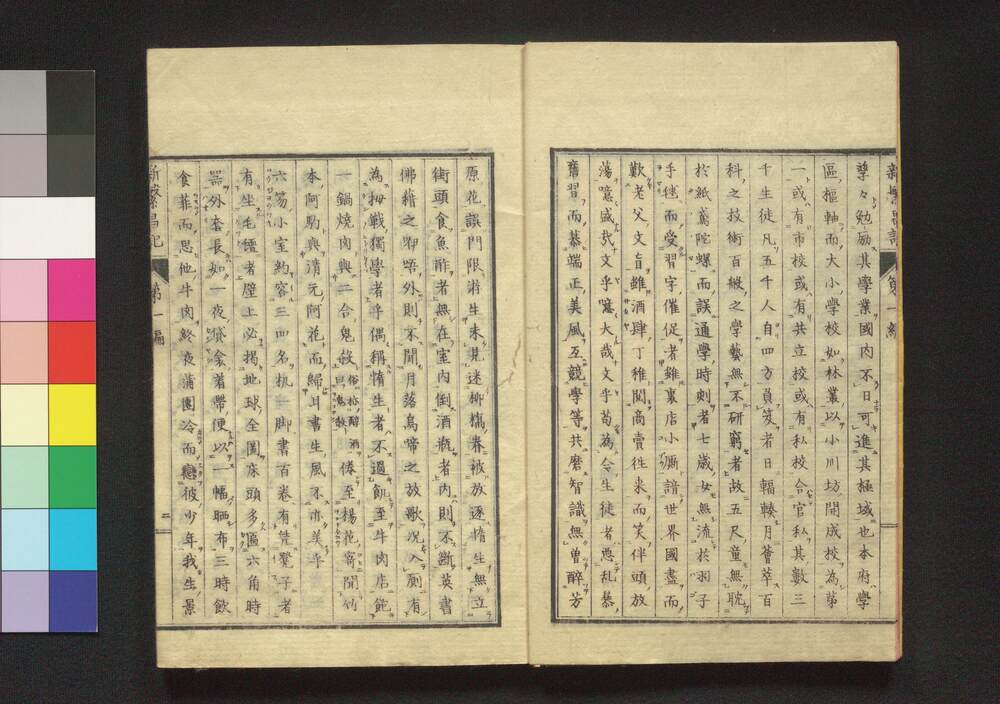 孳々勉励其學業國内不日可進其極域也本府學
區樞軸而大小學校如林叢以小川坊開成校為第
一或有市校或有共立校或有私校合官私其數三
千生徒凡五千人自四方負笈者日輻輳月薈萃百
科之技術百般之學藝無不研窮者故五尺童無耽
於紙鳶陀螺而誤通學時刻者七歳女無流於羽子
手毬而受習字催促者雖裏店小廝諳世界國盡而
歎老父文盲雖酒肆丁稚閲商賣徃来而笑伴頭放
蕩噫盛哉文乎噫大哉文乎苟為今生徒者悪乱暴
舊習而慕端正美風互競學等共磨智識無曽醉芳
原花誤門限游生未見迷柳橋春被放逐惰生無立
街頭食魚酢者無在室内倒酒瓶者内則不斷英書
佛籍之咿唔外則不聞月落烏啼之放歌况入厠有
為拇戰獨學者乎偶稱惰生者不過飢至牛肉店飽
一鍋燒肉與二合鬼殺俗称醉酒曰鬼殺倦至揚花寄聞竹
本阿駒與清元阿花而歸耳書生風不亦美乎
六筭小室約容三四名机一脚書百卷有凭凳子者
有坐毛繵者壁上必掲地球全圖床頭多匾六角時
器外套長如一夜衾着帶便以一幅晒布三時飲
食菲而思他牛肉終夜蒲團冷而戀彼少年我生景
新繁昌記
第一編
二